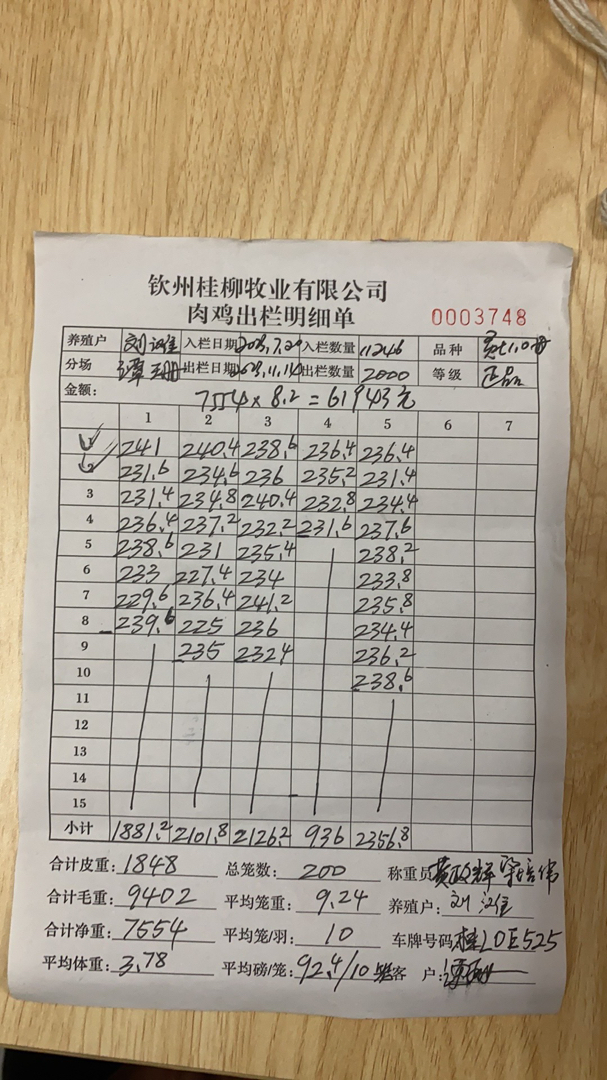 钦州桂柳牧业有限公司
肉鸡出栏明细单
0003748
养殖户 刘 入栏日期 入栏数量 11246 品种
分场 谭 出栏日期 出栏数量 2000 等级 正品
金额： 7554×8.2=61943元
1 2 3 4 5 6 7
241 240.4 238.6 236.4 236.4
231.6 234.6 236 235.2 231.4
3 231.4 234.8 240.4 232.8 234.4
4 236.4 237.2 232.2 231.6 237.6
5 238.6 231 235.4 238.2
6 233 227.4 234 233.8
7 229.6 236.4 241.2 235.8
8 239.6 225 236 234.4
9 235 232.4 236.2
10 238.6
11
12
13
14
15
小计 1881.2 2101.8 2126.2 936 2356.8
合计皮重：1848 总笼数：200 称重员
合计毛重：9402 平均笼重：9.24 养殖户：刘
合计净重：7554 平均笼/羽：10 车牌号码：桂LDE525
平均体重：3.78 平均磅/笼：92.4/10笼 客 户：